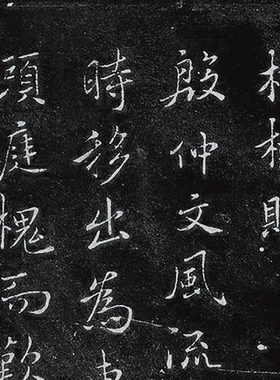 殷仲文風流
時移出為
顧庭槐而歎